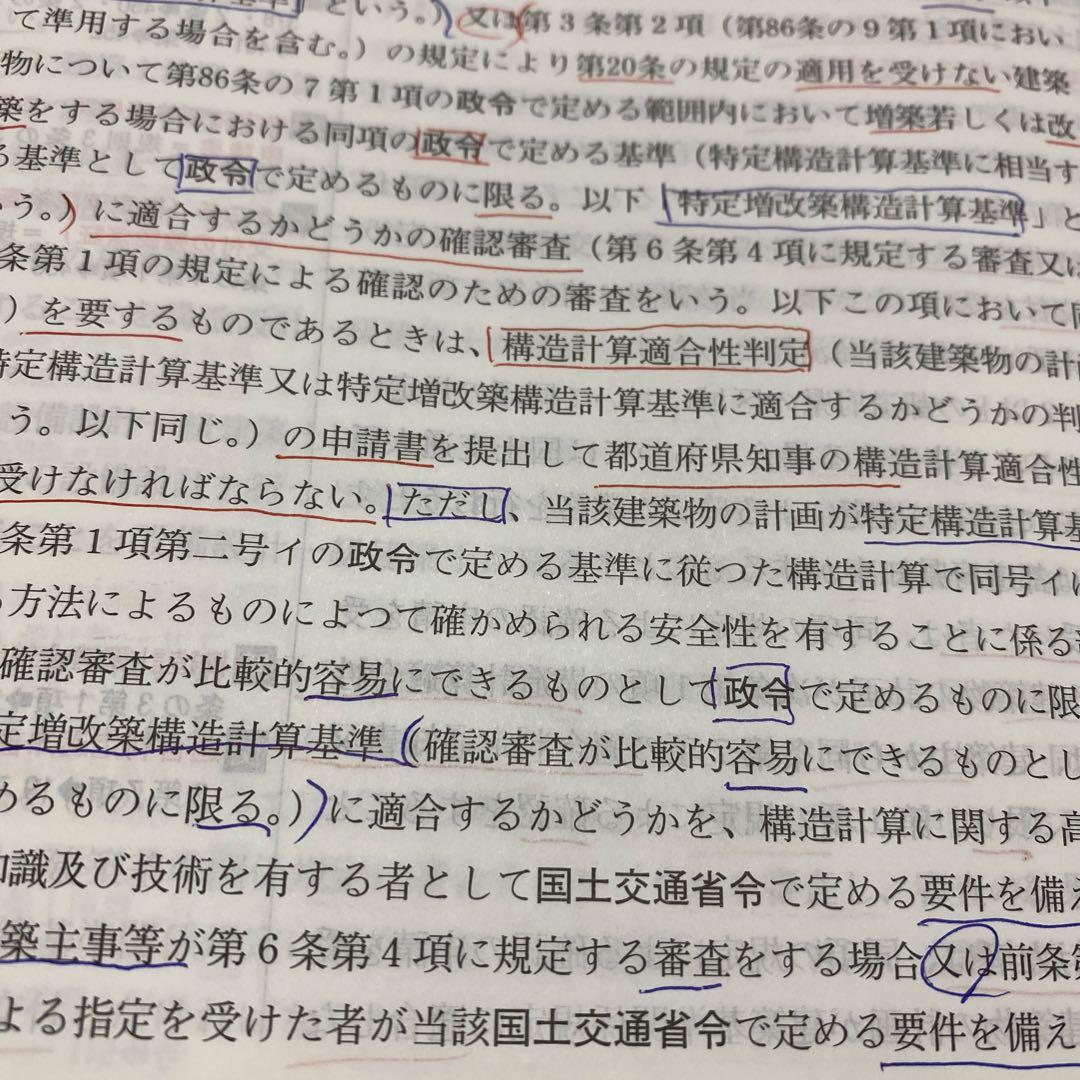 という。）又は第3条第2項（第86条の9第1項におい
て準用する場合を含む。）の規定により第20条の規定の適用を受けない建築
物について第86条の7第1項の政令で定める範囲内において増築若しくは改
築をする場合における同項の政令で定める基準（特定構造計算基準に相当す
る基準として政令で定めるものに限る。以下「特定増改築構造計算基準」と
いう。）に適合するかどうかの確認審査（第6条第4項に規定する審査又は
条第1項の規定による確認のための審査をいう。以下この項において同
）を要するものであるときは、構造計算適合性判定（当該建築物の計画
特定構造計算基準又は特定増改築構造計算基準に適合するかどうかの判
う。以下同じ。）の申請書を提出して都道府県知事の構造計算適合性
受けなければならない。ただし、当該建築物の計画が特定構造計算基
条第1項第二号イの政令で定める基準に従つた構造計算で同号イに
る方法によるものによつて確かめられる安全性を有することに係る
確認審査が比較的容易にできるものとして政令で定めるものに限
定増改築構造計算基準（確認審査が比較的容易にできるものとし
めるものに限る。）に適合するかどうかを、構造計算に関する高
知識及び技術を有する者として国土交通省令で定める要件を備え
築主事等が第6条第4項に規定する審査をする場合又は前条第
よる指定を受けた者が当該国土交通省令で定める要件を備え